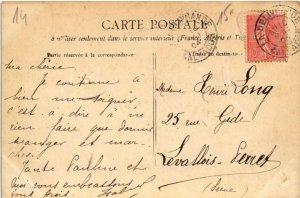 14
15
CARTE POSTALE
n'être seulement dans le service intérieur (France, Algérie et
Partie réservée à la correspondance
ma chérie.
Je continue à
bien me soigner,
c'est à dire à ne
rien faire que dormir
manger et mar-
cher.
Tante Pauline et
moi vous embrassons
tous trois.
Madame Henri Long
25, rue Gide
Levallois-Perret
(Seine)